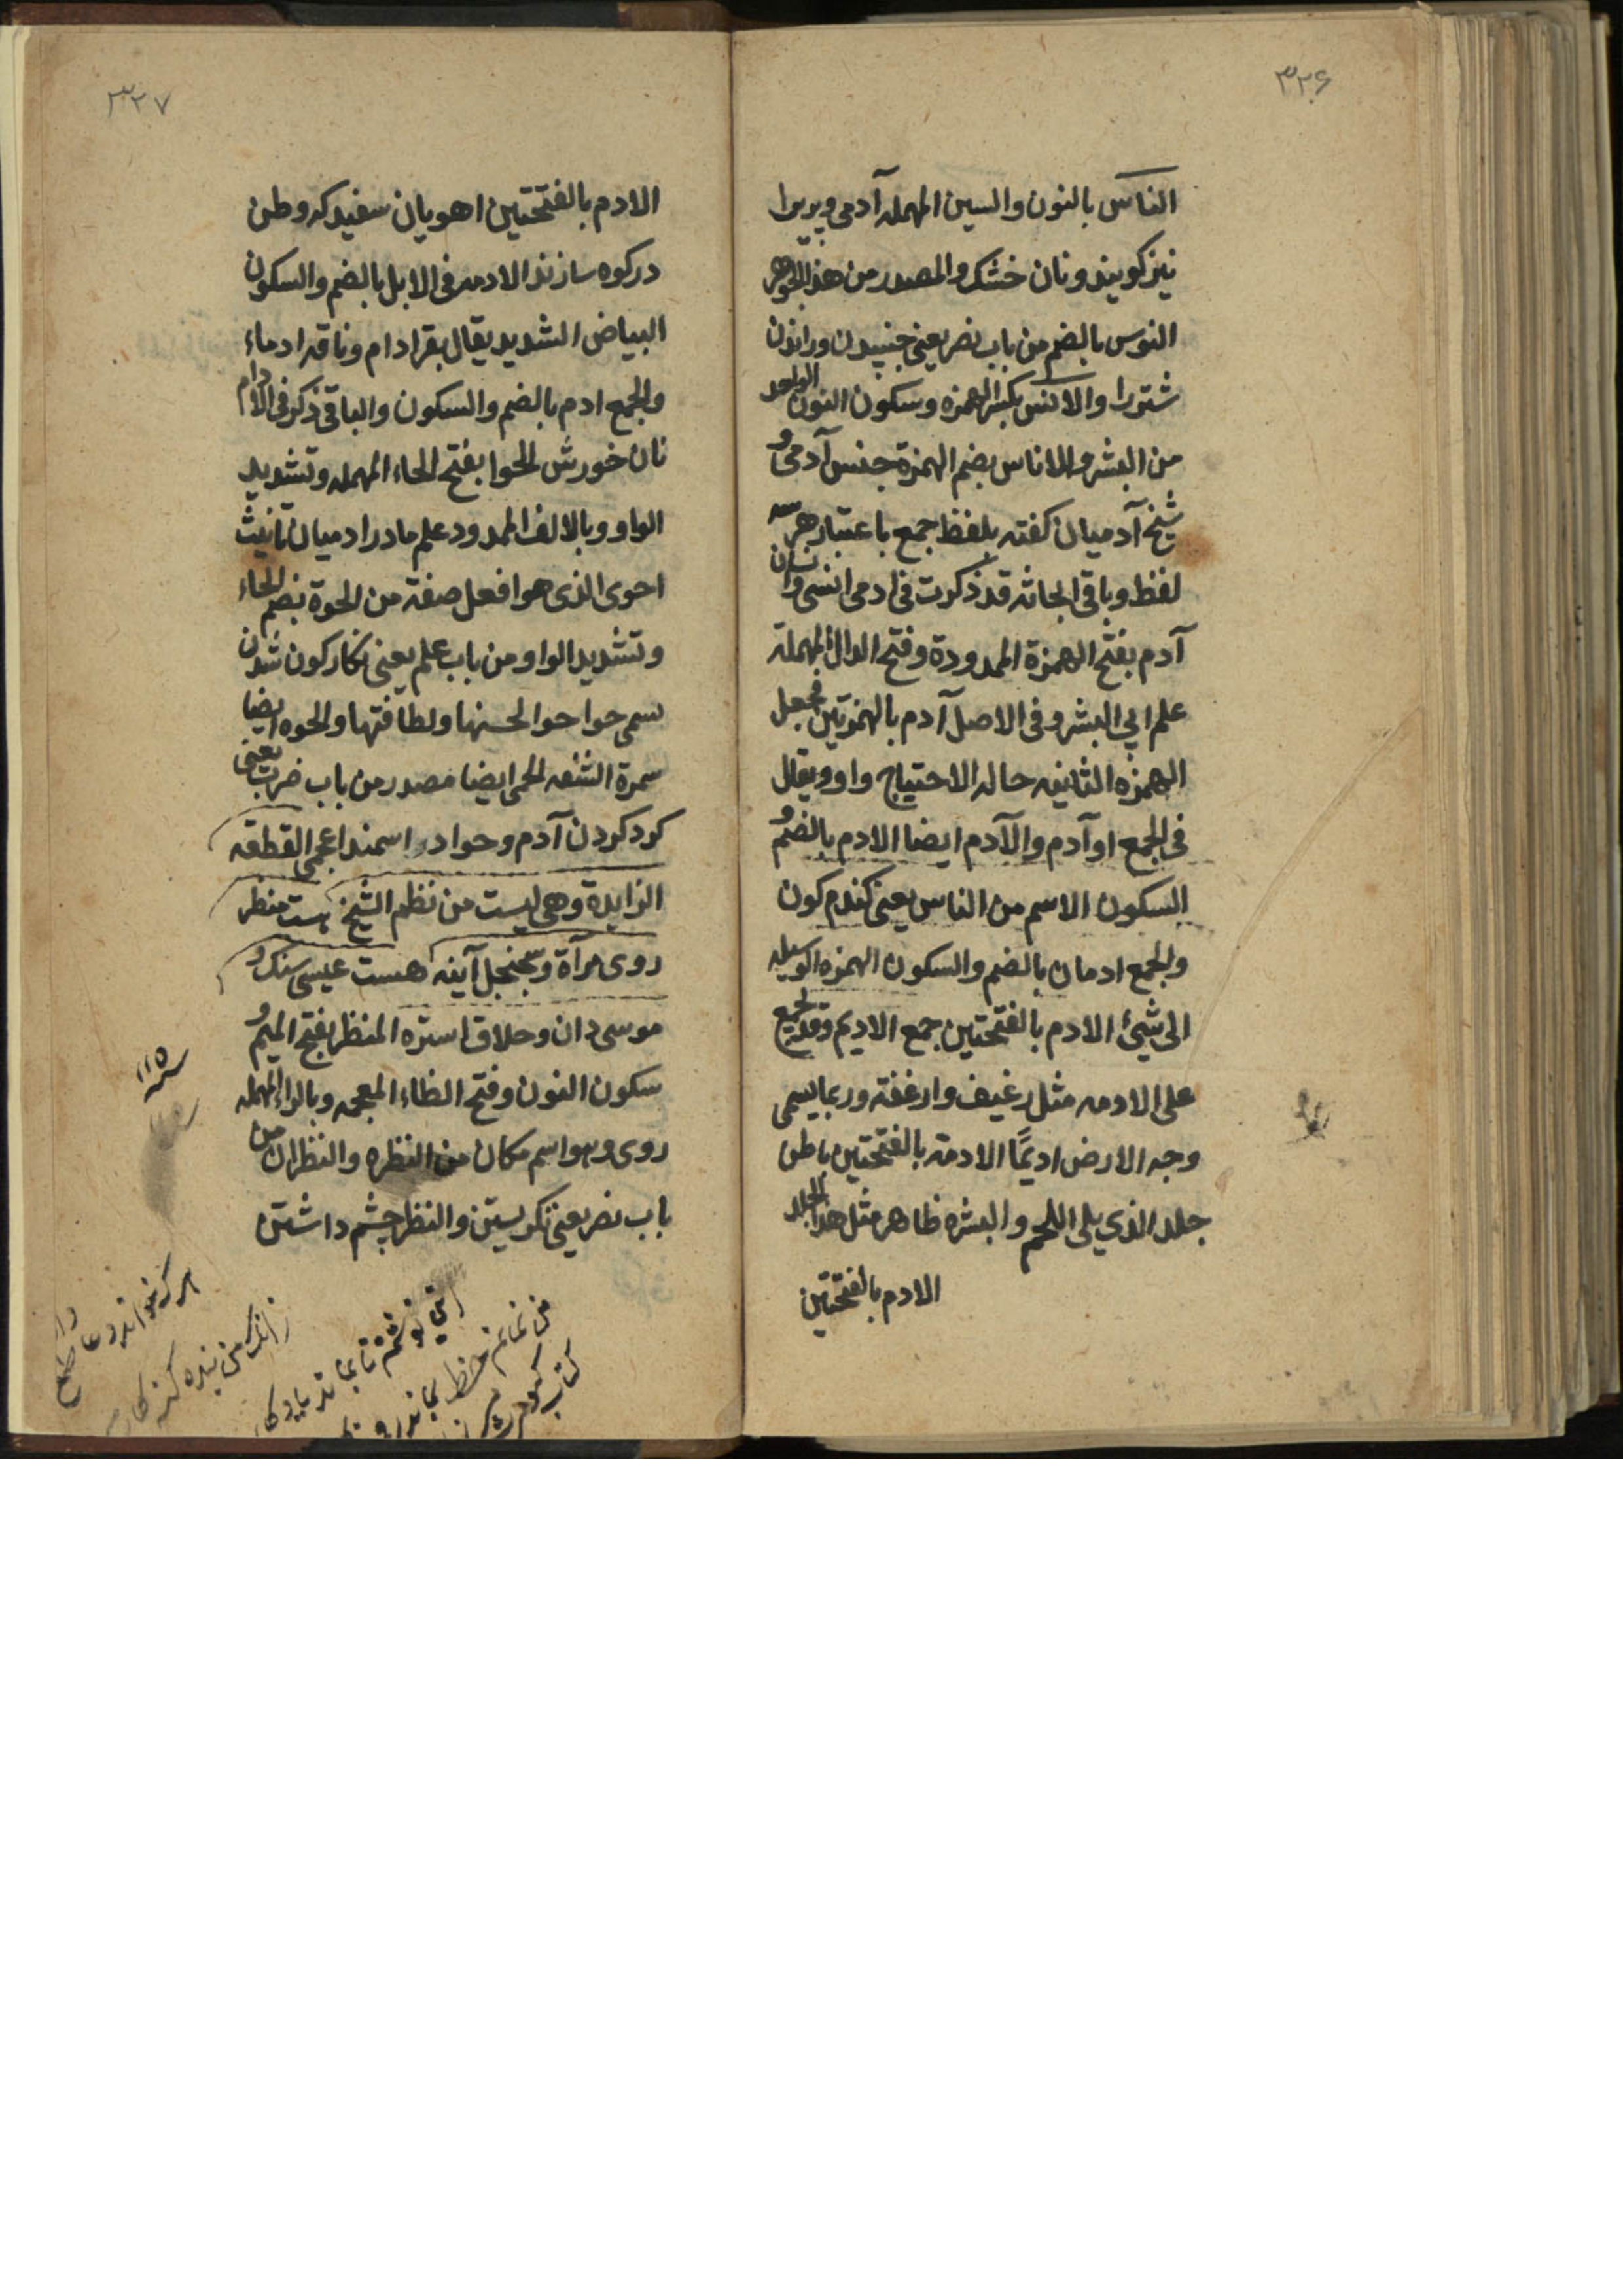 ۳۲۶
الناس بالنون والسین المهمله آدمی و پریرا
نیز کویند و نان خشک والمصدر من هذالجوهر
النوس بالضم من باب نصر یعنی جنبیدن و راندن
شتورا والانس بکسر الهمزه و سکون النون الواحد
من البشر والاناس بضم الهمزة جنس آدمی و
شیخ آدمیان کفته بلفظ جمع باعتبار هر سه
لفظ و باقی ابحاثه قد ذکرت فی ادمی انسی و انسان
آدم بفتح الهمزة الممدودة و فتح الدال المهملة
علم ابی البشر و فی الاصل آدم بالهمزتین فجعل
الهمزه الثانیه حاله الاحتیاج واو و یقال
فی الجمع اوآدم والآدم ایضا الادم بالضم و
السکون الاسم من الناس یعنی کندم کون
والجمع ادمان بالضم والسکون الهمزه الوسیله
الی شیئ الادم بالفتحتین جمع الادیم و قد یجمع
علی الادمه مثل رغیف وارغفة و ربما یسمی
وجه الارض ادیمًا الادمة بالفتحتین باطن
جلد الذی یلی اللحم والبشره ظاهر مثل هذا الجلد
الادم بالفتحتین
۳۲۷
الادم بالفتحتین اهویان سفید که وطن
در کوه سازند الادمه فی الابل بالضم والسکون
البیاض الشدید یقال بقر ادام و ناقه ادماء
والجمع ادم بالضم والسکون والباقی ذکر فی الادام
نان خورش الحوا بفتح الحاء المهمله و تشدید
الواو و بالالف الممدود علم مادر ادمیان تانیث
احوی الذی هو افعل صفة من الحوة بضم الحاء
و تشدید الواو من باب علم یعنی نکار کون شدن
سمی حوا حوا لحسنها و لطافتها والحوه ایضا
سمرة الشفه الحمی ایضا مصدر من باب ضرب یعنی
کرد کردن آدم و حوا در اسمند اعجمی القطقه
الزایدة وهی لیست من نظم الشیخ هست منظر
روی مرآة و سجنجل آینه هست عیسی سنک و
موسی دان و حلاق استره المنظر بفتح المیم و
سکون النون و فتح الظاء المعجمه و بالراء المهمله
روی و هو اسم مکان من النظره والنظران من
باب نصر یعنی نکریستن والنظر چشم داشتن
۱۱۵
هر که خواند دعا طمع دارم
زانکه من بنده کنه کارم
این نوشتم تا بماند یادکار
من نمانم خط بماند